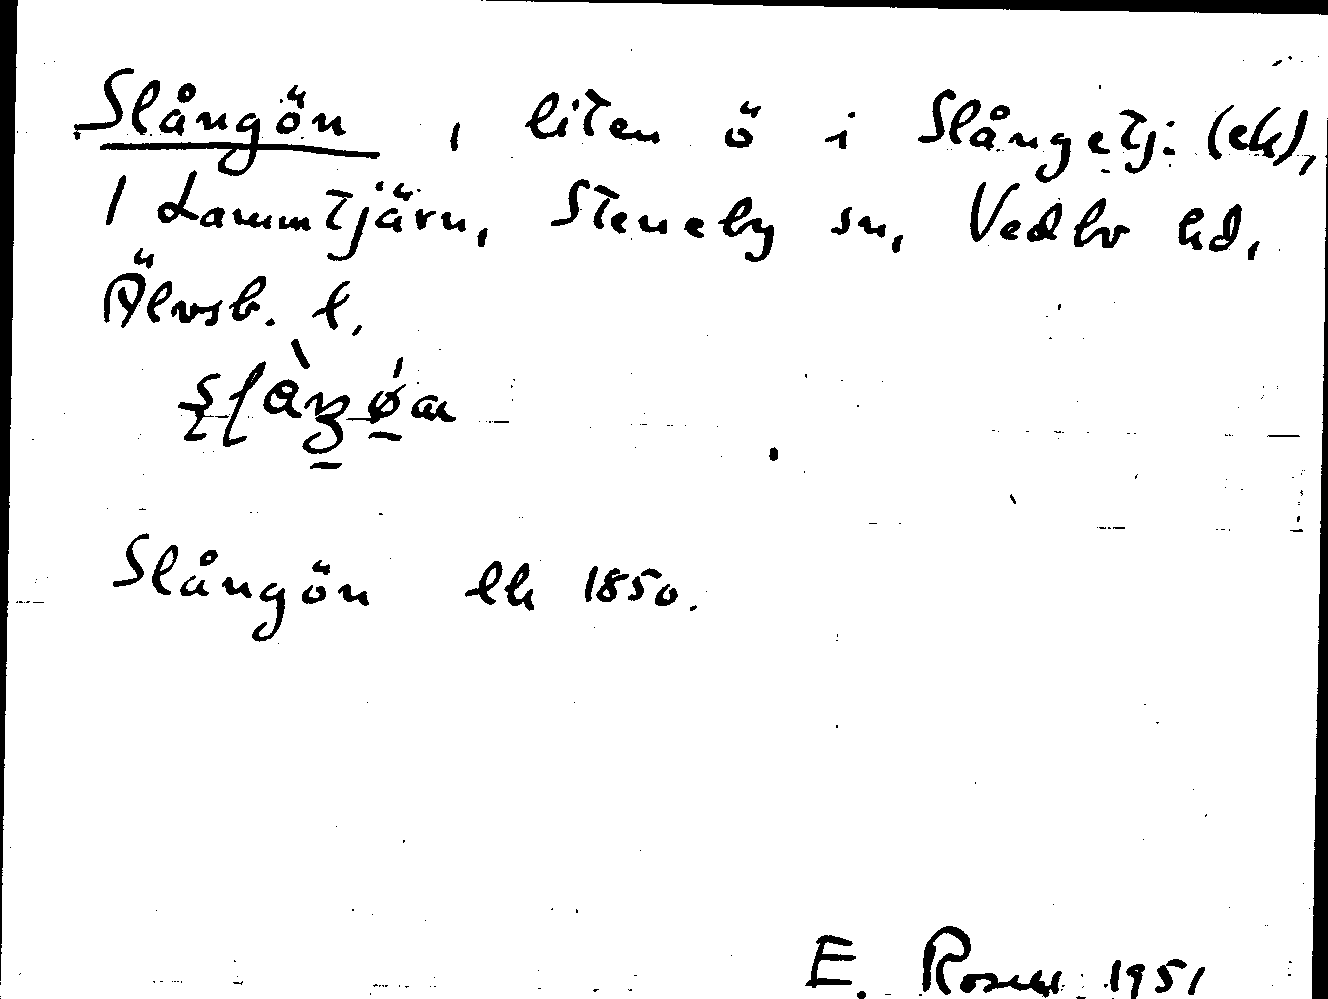 Slångön, liten ö i Slångetj: (ek),
1 Lammtjärn, Steneby sn, Vedbo hd,
Älvsb. l.
Slångön lk 1850.
E. Rosell 1951